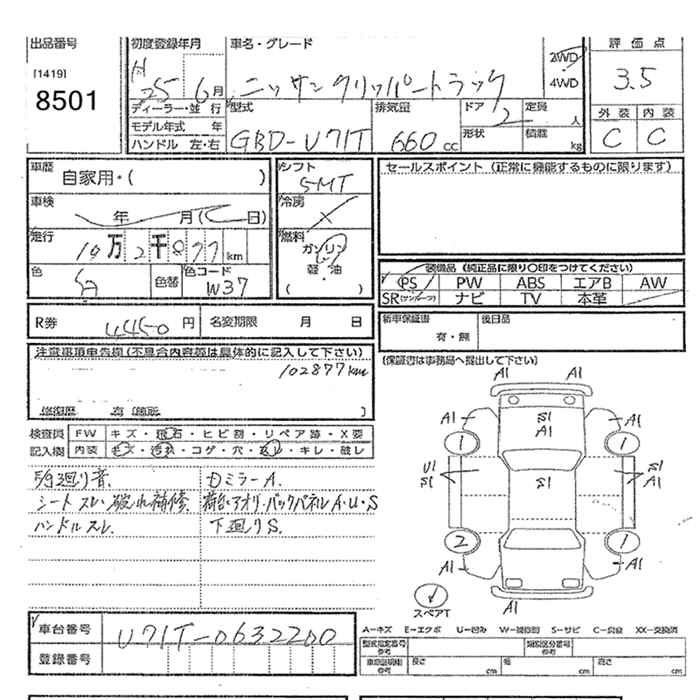 出品番号
[1419]
8501
初度登録年月
H 25 6 月
ディーラー・並行
モデル年式 年
ハンドル 左・右
車名・グレード
ニッサン クリッパートラック
2WD
4WD
型式
GBD-U71T
排気量
660 cc
ドア 2
形状
定員 人
積載 kg
評価点
3.5
外装 内装
C C
車歴
自家用・( )
車検
年 月( 日)
走行
10万2千877 km
色
色替
色コード
W37
シフト
5MT
冷房
×
燃料
ガソリン
軽・油
( )
セールスポイント (正常に機能するものに限ります)
装備品 (純正品に限り○印をつけてください)
PS PW ABS エアB AW
SR(サンルーフ) ナビ TV 本革
R券 4450 円 名変期限 月 日
新車保証書
有・無
後日品
(保証書は事務局へ提出して下さい)
注意事項申告欄 (不具合内容等は具体的に記入して下さい)
102877km
修復歴 有 (箇所 )
検査員
記入欄
FW キズ・飛石・ヒビ割・リペア跡・X要
内装 キズ・汚れ・コゲ・穴・スレ・キレ・破レ
下廻り音.
シートスレ・破れ補修.
ハンドルスレ.
Dミラー A.
荷台・アオリ・バックパネルA・U・S
下廻りS.
A1 A1
A1 S1 A1 A1
1 1
U1 S1 S1 U1 S1
2 1
A1 A1
A1
スペアT
A-キズ E-エクボ U-凹み W-補修跡 S-サビ C-腐食 XX-交換済
車台番号
U71T-0632200
登録番号
型式指定番号
参考
類別区分番号
参考
車検証明細
参考
長さ cm 幅 cm 高さ cm